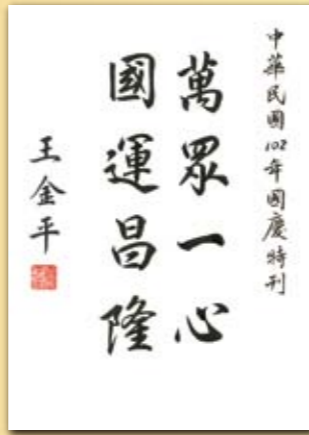 中華民國102年國慶特刊
萬眾一心
國運昌隆
王金平